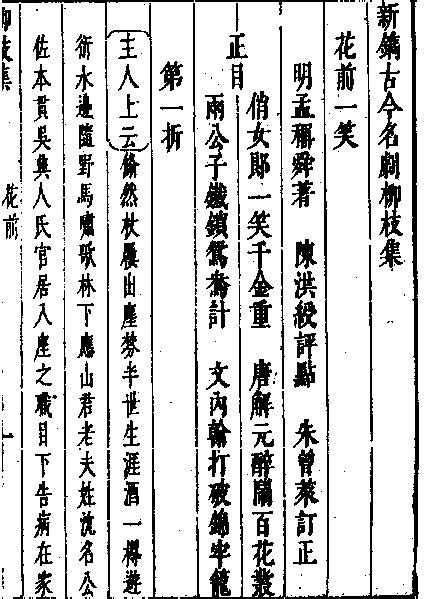 新鐫古今名劇柳枝集
花前一笑
明孟稱舜著 陳洪綬評點 朱曾萊訂正
正目
俏女郎一笑千金重 唐解元醉鬧百花叢
兩公子鐵鎖鴛鴦計 文內翰打破錦牢籠
第一折
主人上云翛然杖屨出塵氛半世生涯酒一樽遊
衍水邊隨野馬嘯歌林下應山君老夫姓沈名公
佐本貫吳興人氏官居八座之職目下告病在家
柳枝集 花前 一